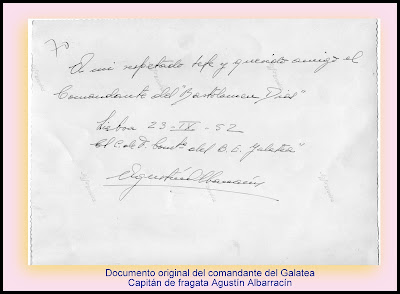 A mi respetado Jefe y querido amigo el
Comandante del "Bartolomeu Dias"
Lisboa 23-IX-52
El C. de F. Comte del B.E. Galatea"
Agustín Albarracín
Documento original del comandante del Galatea
Capitán de fragata Agustín Albarracín